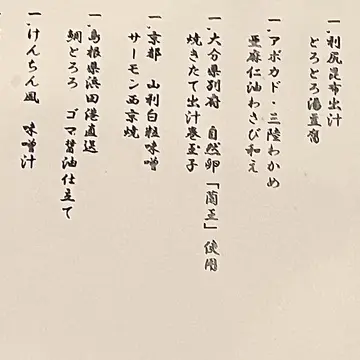 一、利尻昆布出汁
どろどろ湯豆腐
一、アボカド・三陸わかめ
亜麻仁油わさび和え
一、大分県別府 自然卵「蘭王」使用
焼きたて出汁巻玉子
一、京都 山利白粒味噌
サーモン西京焼
一、島根県浜田港直送
鯛とろろ ゴマ醤油仕立て
一、けんちん風 味噌汁